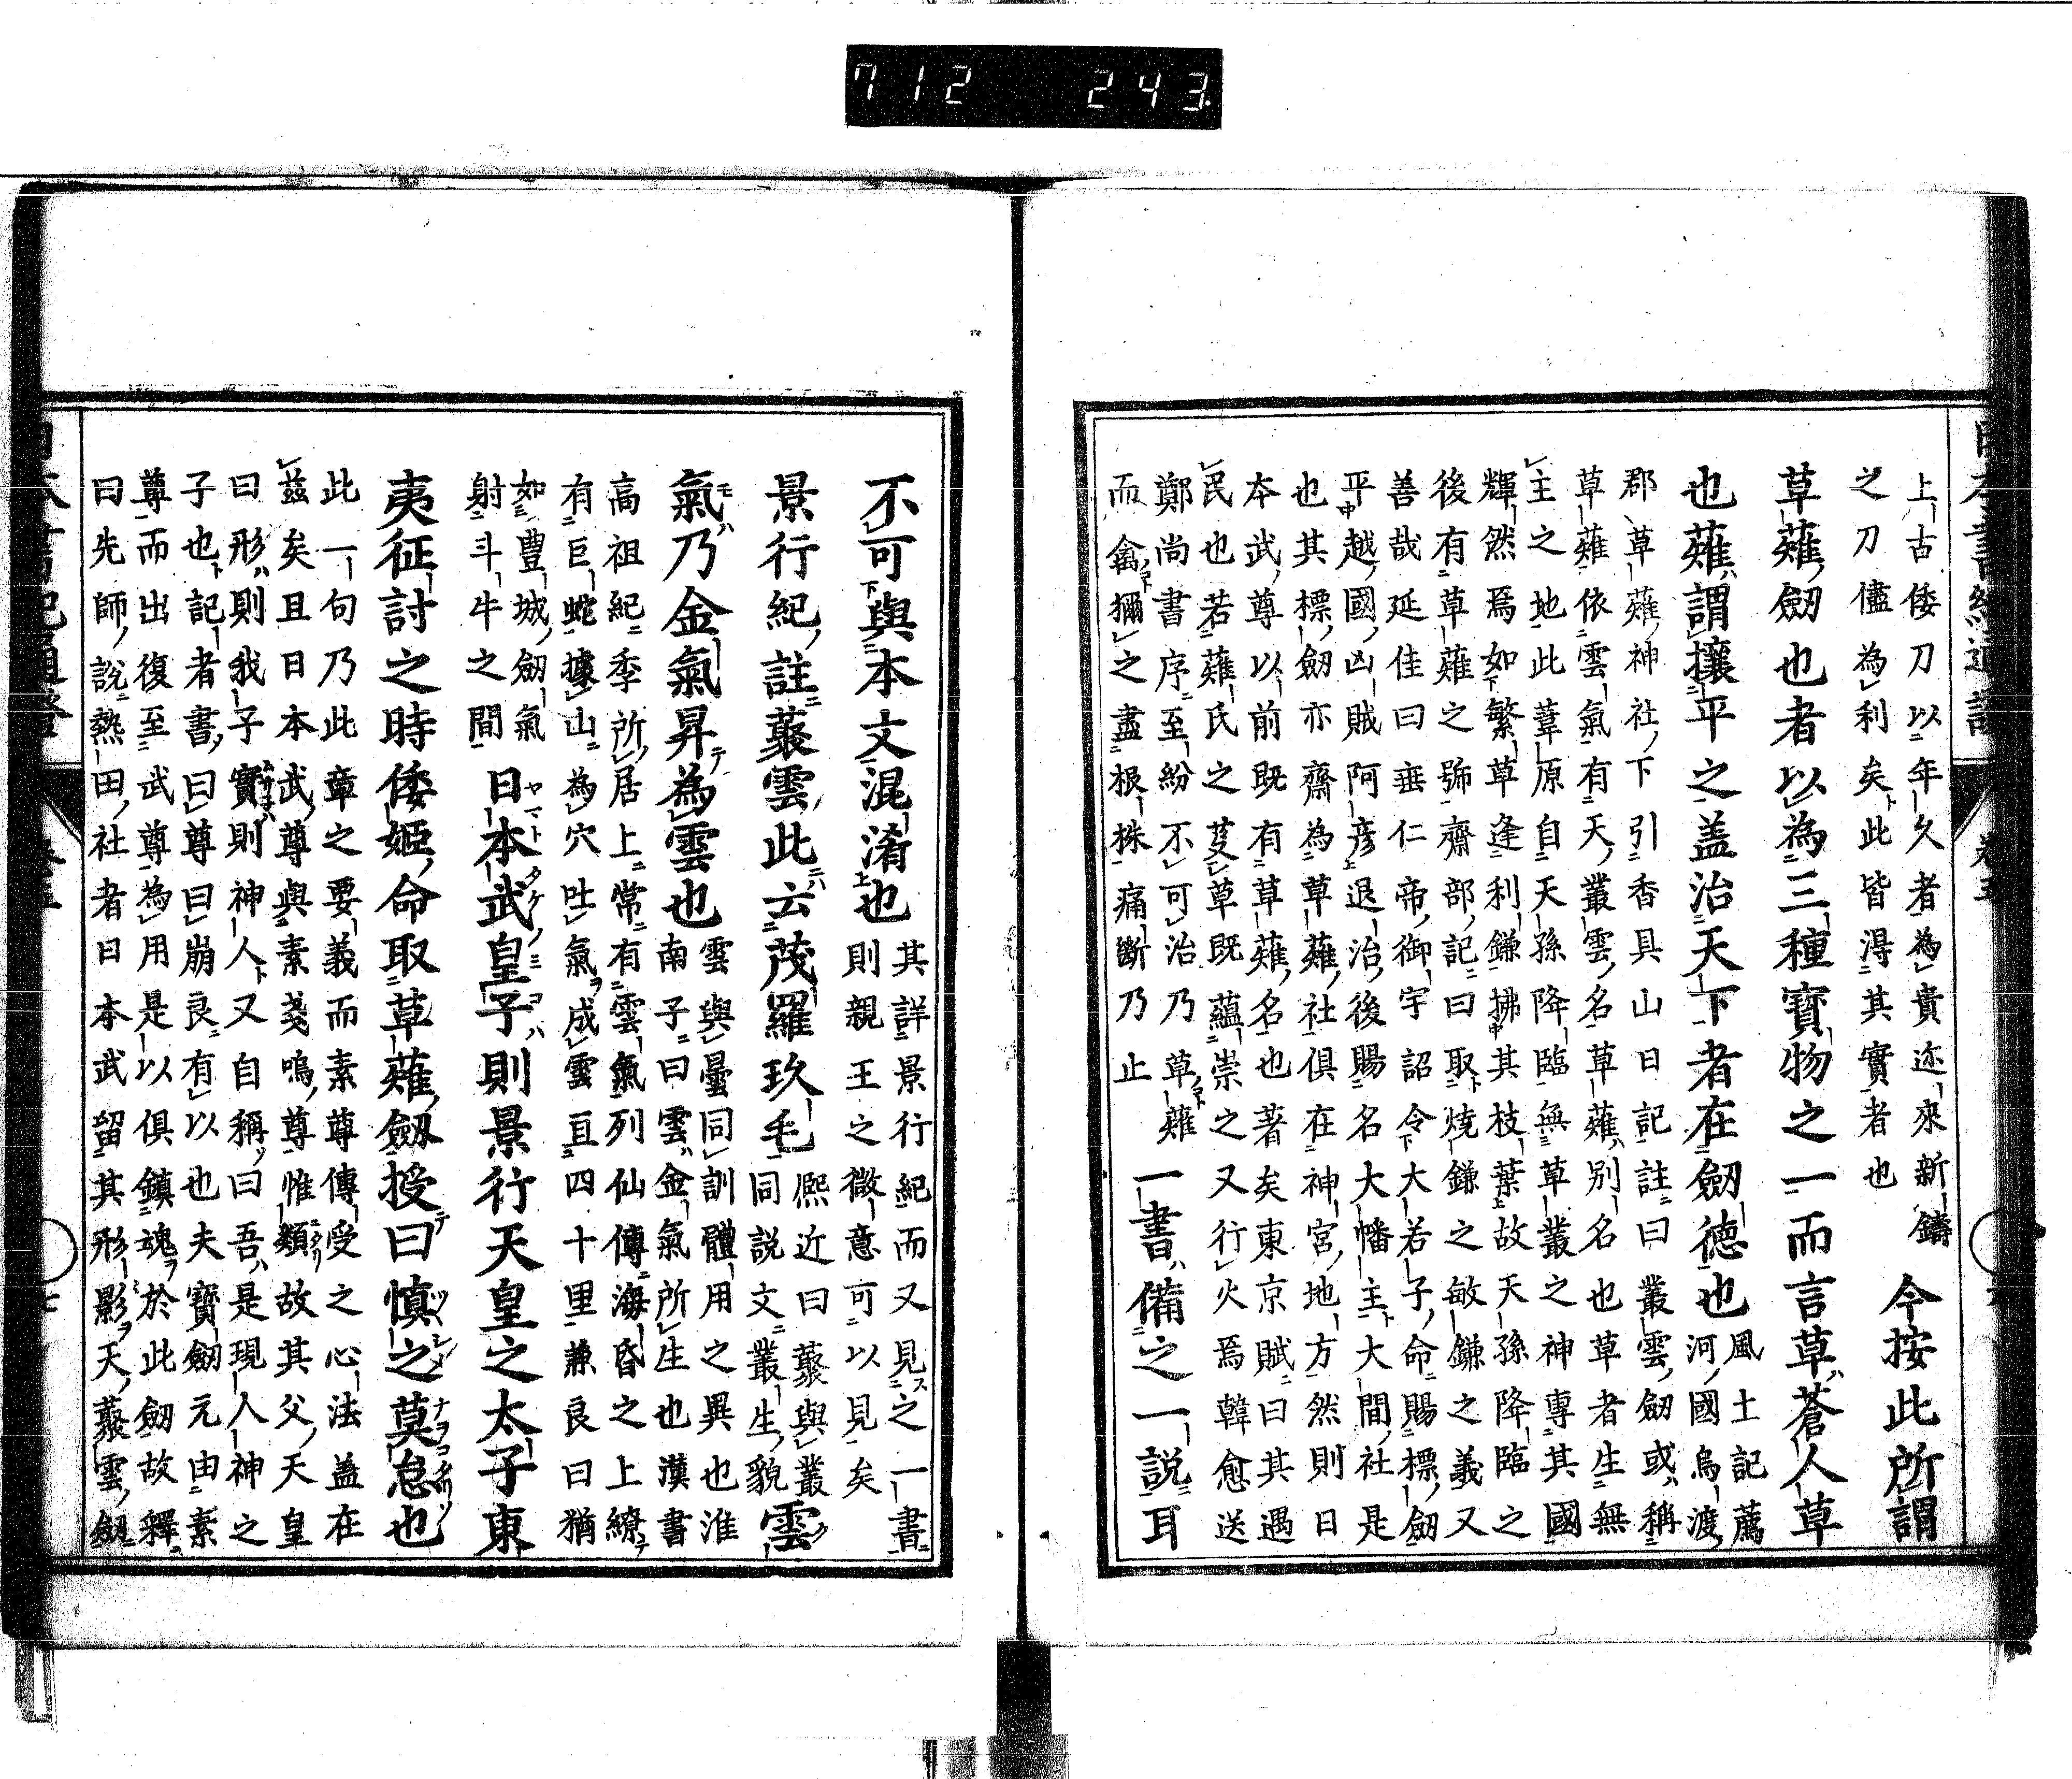 712 243
上古倭刀以年久者為貴迩來新鑄
之刀儘為利矣此皆淂其實者也
今按此所謂
草薙劒也者以為三種寶物之一而言草蒼人草
也薙謂攘平之盖治天下者在劒德也
風土記薦
河國烏渡
郡草薙神社下引香具山日記註曰叢雲劒或稱
草薙依雲氣有天叢雲名草薙別名也草者生無
主之地此葦原自天孫降臨無草叢之神專其國
輝然焉如繁草逢利鎌拂其枝葉故天孫降臨之
後有草薙之號齋部記曰取燒鎌之敏鎌之義又
善哉延佳曰垂仁帝御宇詔令大若子命賜標劒
平越國凶賊阿彦退治後賜名大幡主大間社是
也其標劒亦齋為草薙社俱在神宮地方然則日
本武尊以前既有草薙名也著矣東京賦曰其遇
民也若薙氏之芟草既蘊崇之又行火焉韓愈送
鄭尚書序至紛不可治乃草薙
而禽獮之盡根株痛斷乃止
一書備之一說耳
不可與本文混淆也
其詳景行紀而又見之一書
則親王之微意可以見矣
景行紀註蘂雲此云茂羅玖毛
熈近曰蘂與叢
同說文叢生貌
雲
氣乃金氣昇為雲也
雲與曇同訓體用之異也淮
南子曰雲金氣所生也漢書
高祖紀季所居上常有雲氣列仙傳海昏之上繚
有巨蛇據山為穴吐氣成雲亘四十里兼良曰猶
如豐城劒氣
射斗牛之間
日本武皇子則景行天皇之太子東
夷征討之時倭姫命取草薙劒授曰慎之莫怠也
此一句乃此章之要義而素尊傳受之心法盖在
茲矣且日本武尊與素戔嗚尊惟類故其父天皇
曰形則我子實則神人又自稱曰吾是現人神之
子也記者書曰尊曰崩良有以也夫寶劒元由素
尊而出復至武尊為用是以俱鎮魂於此劒故釋
曰先師說熱田社者日本武留其形影天蘂雲劒